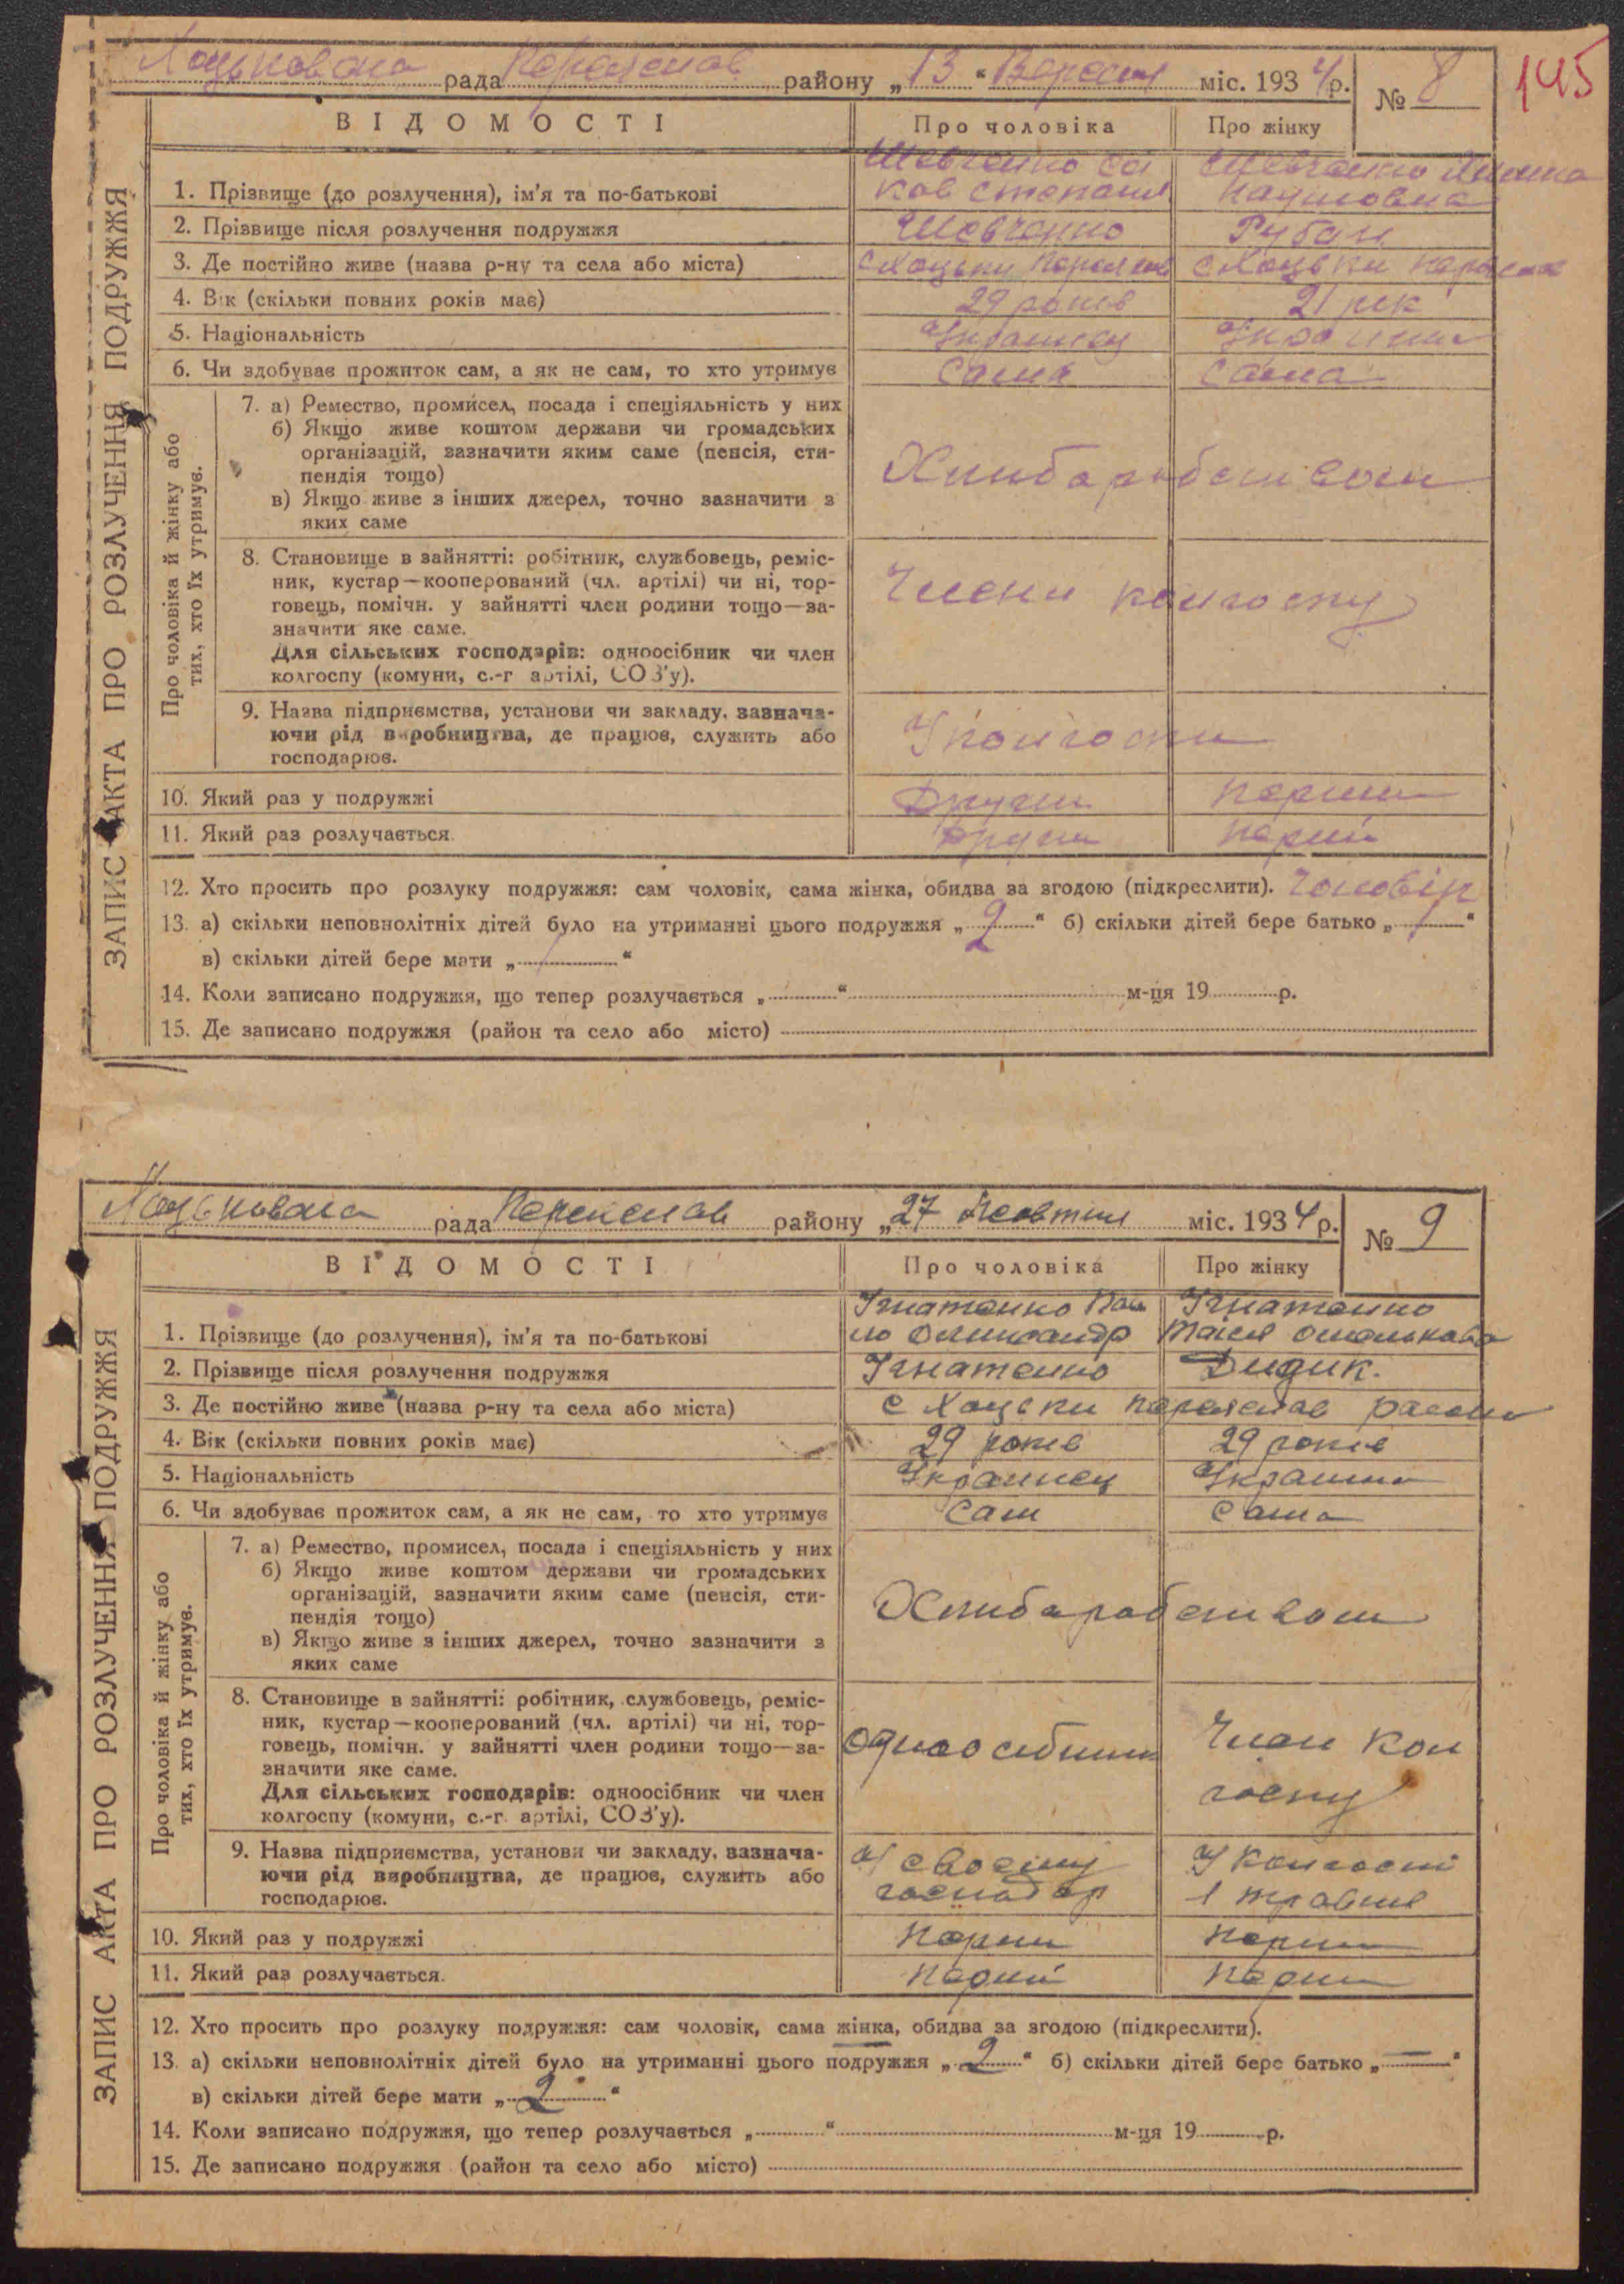 145
Хоцьковска рада Переяслав району „13" Вересня міс. 1934 р. № 8
ВІДОМОСТІ Про чоловіка Про жінку
ЗАПИС АКТА ПРО РОЗЛУЧЕННЯ ПОДРУЖЖЯ
1. Прізвище (до розлучення), ім'я та по-батькові Шевченко Шевченко
Наумовна
2. Прізвище після розлучення подружжя Шевченко Рубан
3. Де постійно живе (назва р-ну та села або міста) с Хоцьки Переяслав с Хоцьки Переяслав
4. Вік (скільки повних років має) 29 років 21 рік
5. Національність Украинец Украинка
6. Чи здобуває прожиток сам, а як не сам, то хто утримує Сама
Про чоловіка й жінку або
тих, хто їх утримує.
7. а) Ремество, промисел, посада і спеціяльність у них
б) Якщо живе коштом держави чи громадських
організацій, зазначити яким саме (пенсія, сти-
пендія тощо)
в) Якщо живе з інших джерел, точно зазначити з
яких саме
Хлибаробством
8. Становище в зайнятті: робітник, службовець, реміс-
ник, кустар—кооперований (чл. артілі) чи ні, тор-
говець, помічн. у зайнятті член родини тощо—за-
значити яке саме.
Для сільських господарів: одноосібник чи член
колгоспу (комуни, с.-г артілі, СОЗ'у).
Члени колгоспу
9. Назва підприємства, установи чи закладу, зазнача-
ючи рід виробництва, де працює, служить або
господарює.
10. Який раз у подружжі Други Перши
11. Який раз розлучається. Други Перши
12. Хто просить про розлуку подружжя: сам чоловік, сама жінка, обидва за згодою (підкреслити). Чоловік
13. а) скільки неповнолітніх дітей було на утриманні цього подружжя „2" б) скільки дітей бере батько „ "
в) скільки дітей бере мати „ "
14. Коли записано подружжя, що тепер розлучається „ " м-ця 19 р.
15. Де записано подружжя (район та село або місто)
Хоцьковска рада Переяслав району „27 Жовтня міс. 1934 р. № 9
ВІДОМОСТІ Про чоловіка Про жінку
ЗАПИС АКТА ПРО РОЗЛУЧЕННЯ ПОДРУЖЖЯ
Игнатенко Игнатенко
1. Прізвище (до розлучення), ім'я та по-батькові
2. Прізвище після розлучення подружжя Игнатенко Дидик.
3. Де постійно живе (назва р-ну та села або міста) с Хоцьки Переяслав району
4. Вік (скільки повних років має) 29 років 29 років
5. Національність Украинец Украинка
6. Чи здобуває прожиток сам, а як не сам, то хто утримує Сам Сама
Про чоловіка й жінку або
тих, хто їх утримує.
7. а) Ремество, промисел, посада і спеціяльність у них
б) Якщо живе коштом держави чи громадських
організацій, зазначити яким саме (пенсія, сти-
пендія тощо)
в) Якщо живе з інших джерел, точно зазначити з
яких саме
Хлибаробством
8. Становище в зайнятті: робітник, службовець, реміс-
ник, кустар—кооперований (чл. артілі) чи ні, тор-
говець, помічн. у зайнятті член родини тощо—за-
значити яке саме.
Для сільських господарів: одноосібник чи член
колгоспу (комуни, с.-г. артілі, СОЗ'у).
Одноосибник Член кол
госпу
9. Назва підприємства, установи чи закладу, зазнача-
ючи рід виробництва, де працює, служить або
господарює.
У своему У колгоспі
господар 1 травня
10. Який раз у подружжі Перши Перши
11. Який раз розлучається. Перший Перши
12. Хто просить про розлуку подружжя: сам чоловік, сама жінка, обидва за згодою (підкреслити).
13. а) скільки неповнолітніх дітей було на утриманні цього подружжя „2" б) скільки дітей бере батько „—"
в) скільки дітей бере мати „2"
14. Коли записано подружжя, що тепер розлучається „ " м-ця 19 р.
15. Де записано подружжя (район та село або місто)